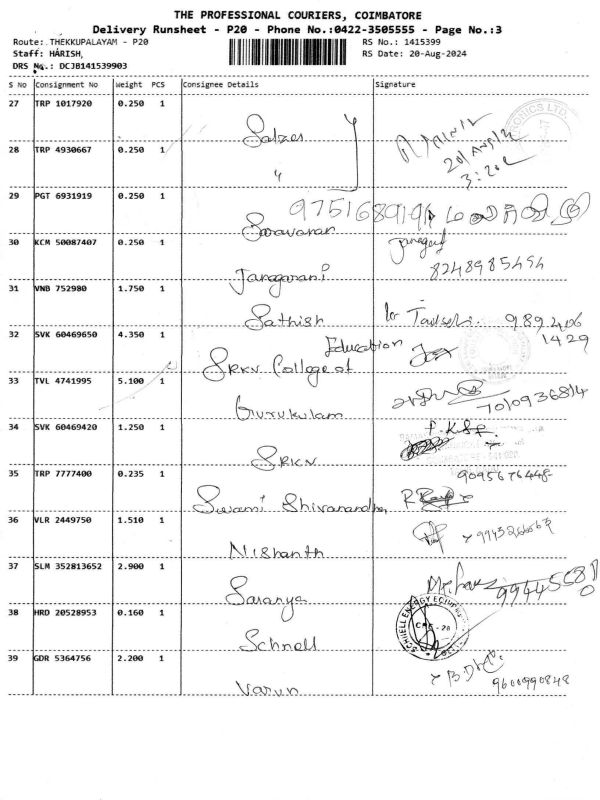 THE PROFESSIONAL COURIERS, COIMBATORE
Delivery Runsheet - P20 - Phone No.:0422-3505555 - Page No.:3
Route: THEKKUPALAYAM - P20 RS No.: 1415399
Staff: HARISH, RS Date: 20-Aug-2024
DRS No.: DCJB141539903
S No Consignment No Weight PCS Consignee Details Signature
27 TRP 1017920 0.250 1
Salzer
28 TRP 4930667 0.250 1
"
3:20
29 PGT 6931919 0.250 1
Saravanan 9751689191
30 KCM 50087407 0.250 1
Janagarani 8248985494
31 VNB 752980 1.750 1
Sathish 989406
1429
32 SVK 60469650 4.350 1
SRKV College of Education
33 TVL 4741995 5.100 1
Gurukulam 7010936814
34 SVK 60469420 1.250 1
SRKV
35 TRP 7777400 0.235 1 9095676448
Swami Shivanandha
36 VLR 2449750 1.510 1
Nishanth
37 SLM 352813652 2.900 1
Saranya
38 HRD 20528953 0.160 1
Schnell
39 GDR 5364756 2.200 1
Varun 9600990848